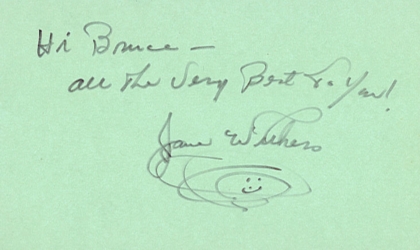 Hi Bruce —
all the Very Best to You!
Jane Withers